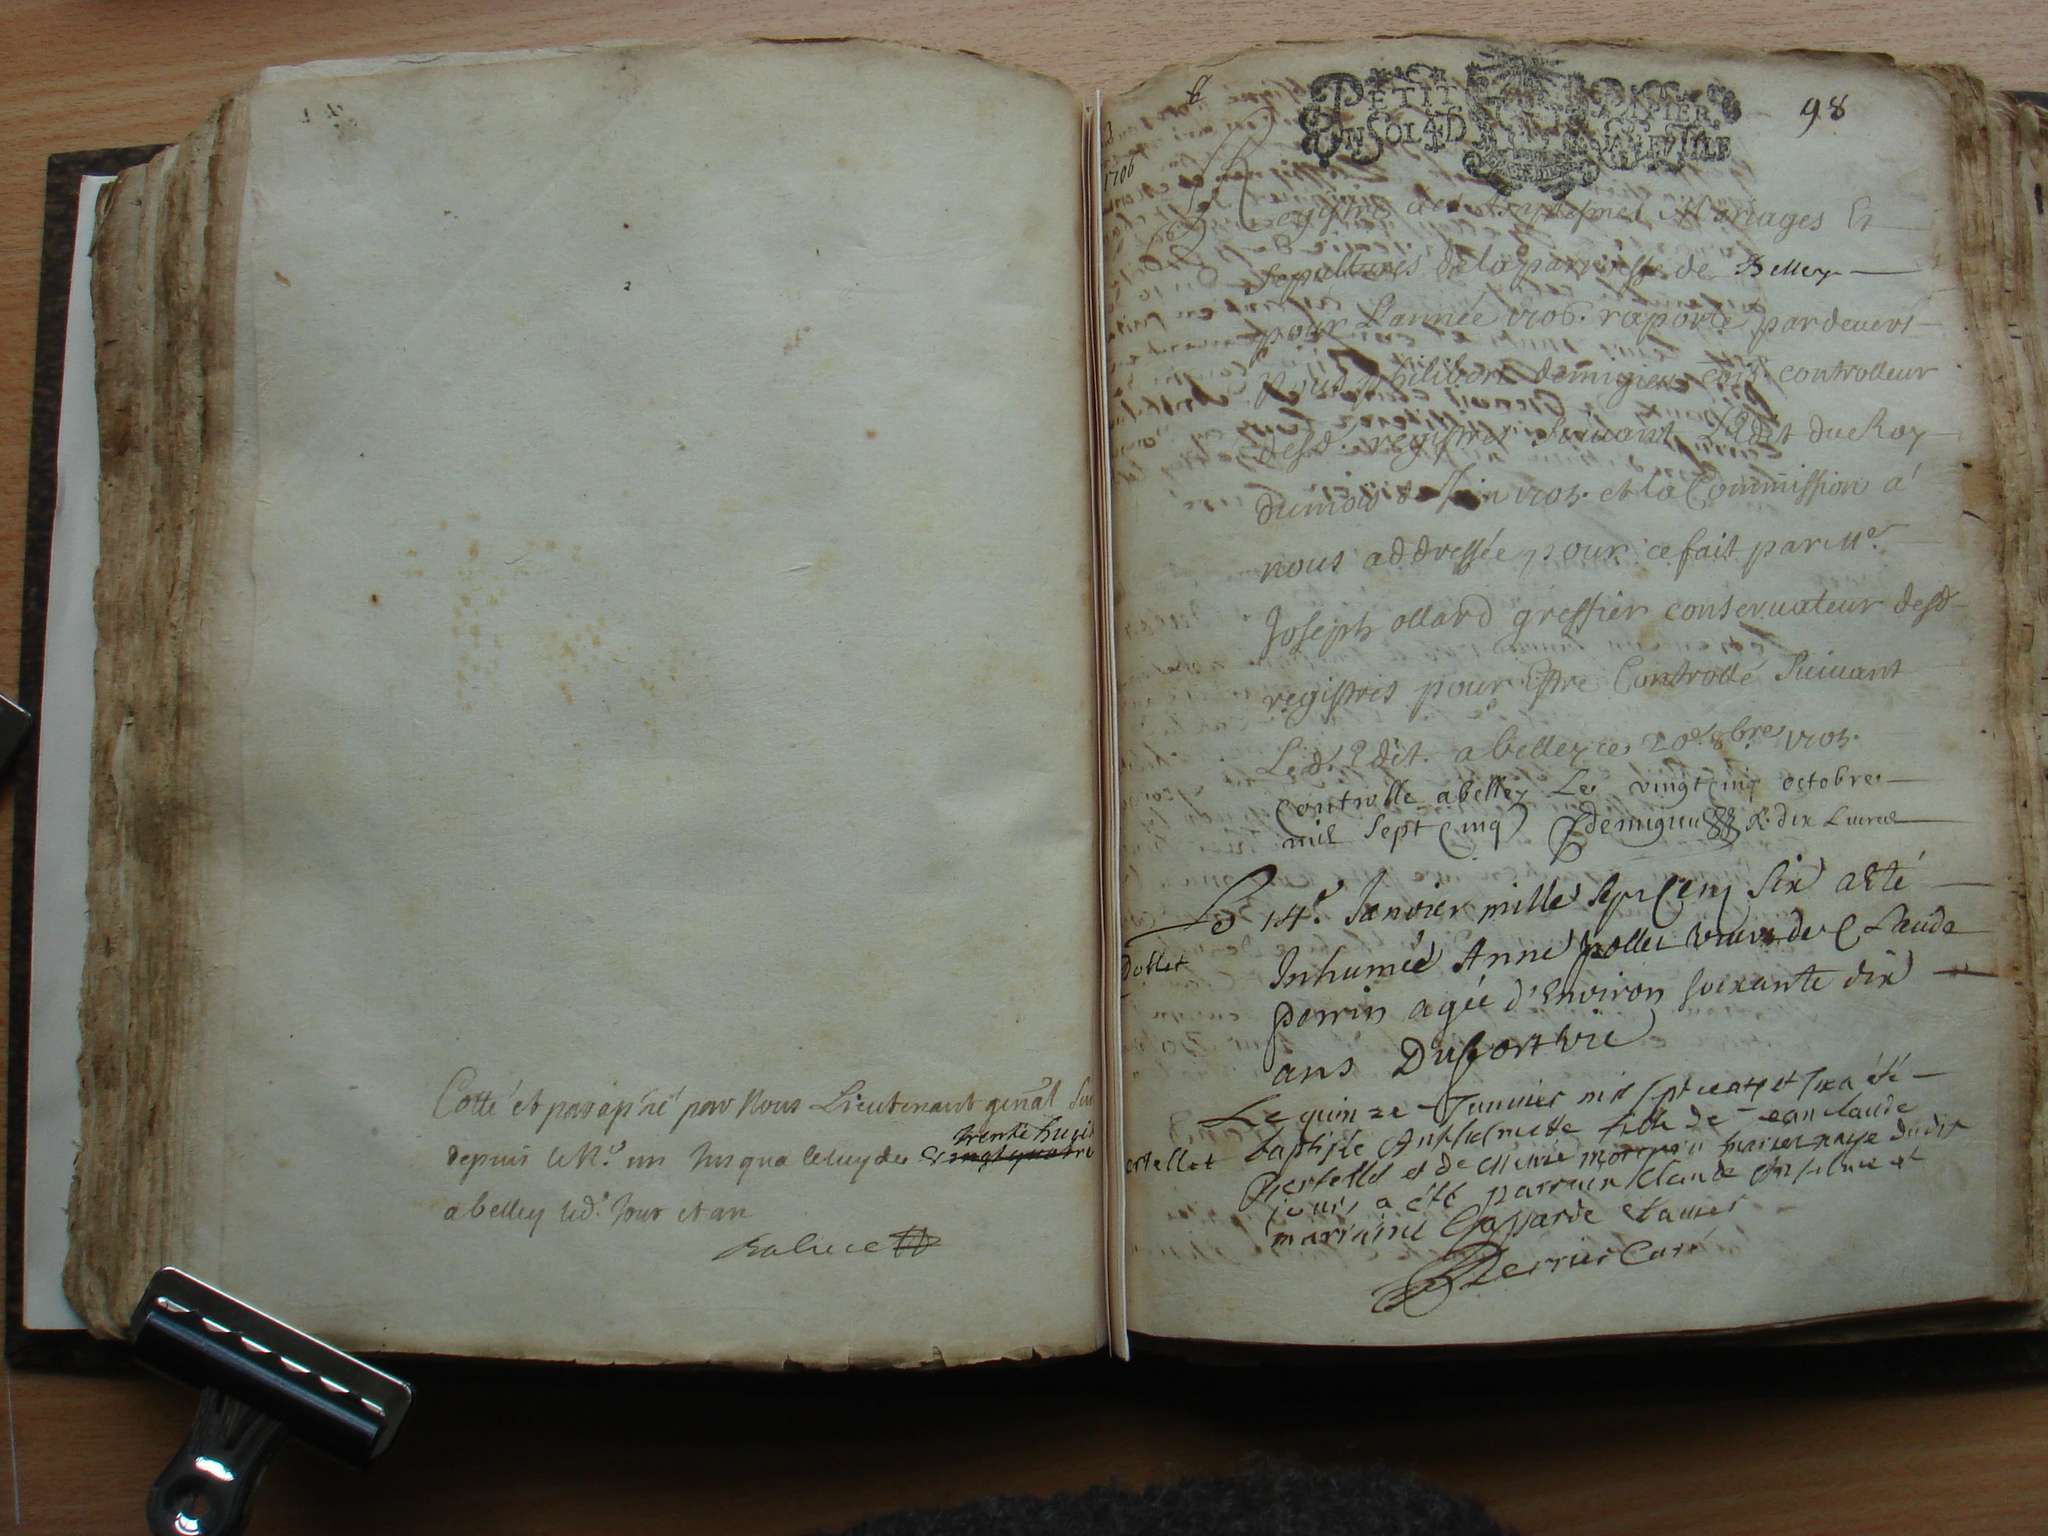 Cotté et paraphé par Nous Lieutenant genãl
depuis le N.º un Jusqua celuy de trente huit
vingt quatre
a belley led.t Jour et an
98
PETIT PAPIER
UN SOL 4 D LA FEUILLE
1706
Registre des Baptesmes Mariages Et
sepultures de la parroisse de Belley
pour L'année 1706. raporté pardevers
Nous philibert demigieu con.er controlleur
desd. registres suivant l'Edit du Roy
du mois de Juin 1705. et la Commission a
nous addressée pour ce fait par Me.
Joseph ollard greffier conservateur desd
registres pour Estre Controllé Suivant
Led. Edit. a belley ce 20e. 8bre 1705.
Controlle a belley Le vingt cinq octobre
mil sept cinq Demigieu R. dix Livres
Le 14e Janvier mille sept cens Six a Eté
pollet
Inhumée Anne pollet veuve de Claude
perrin agée d'Environ soixante dix
ans Duport vic
Le quinze Janvier mil sept cents et six a été
baptisée Anthelmette fille de Jean claude
ertellet
et de
jour, a été parrain Claude
marraine Gasparde
Perrier Curé